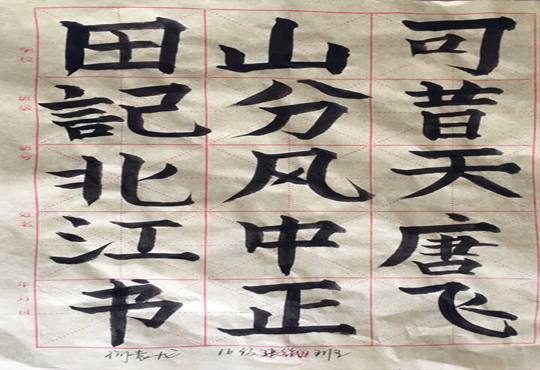 可昔天唐飞
山分风中正
田記北江书
16级